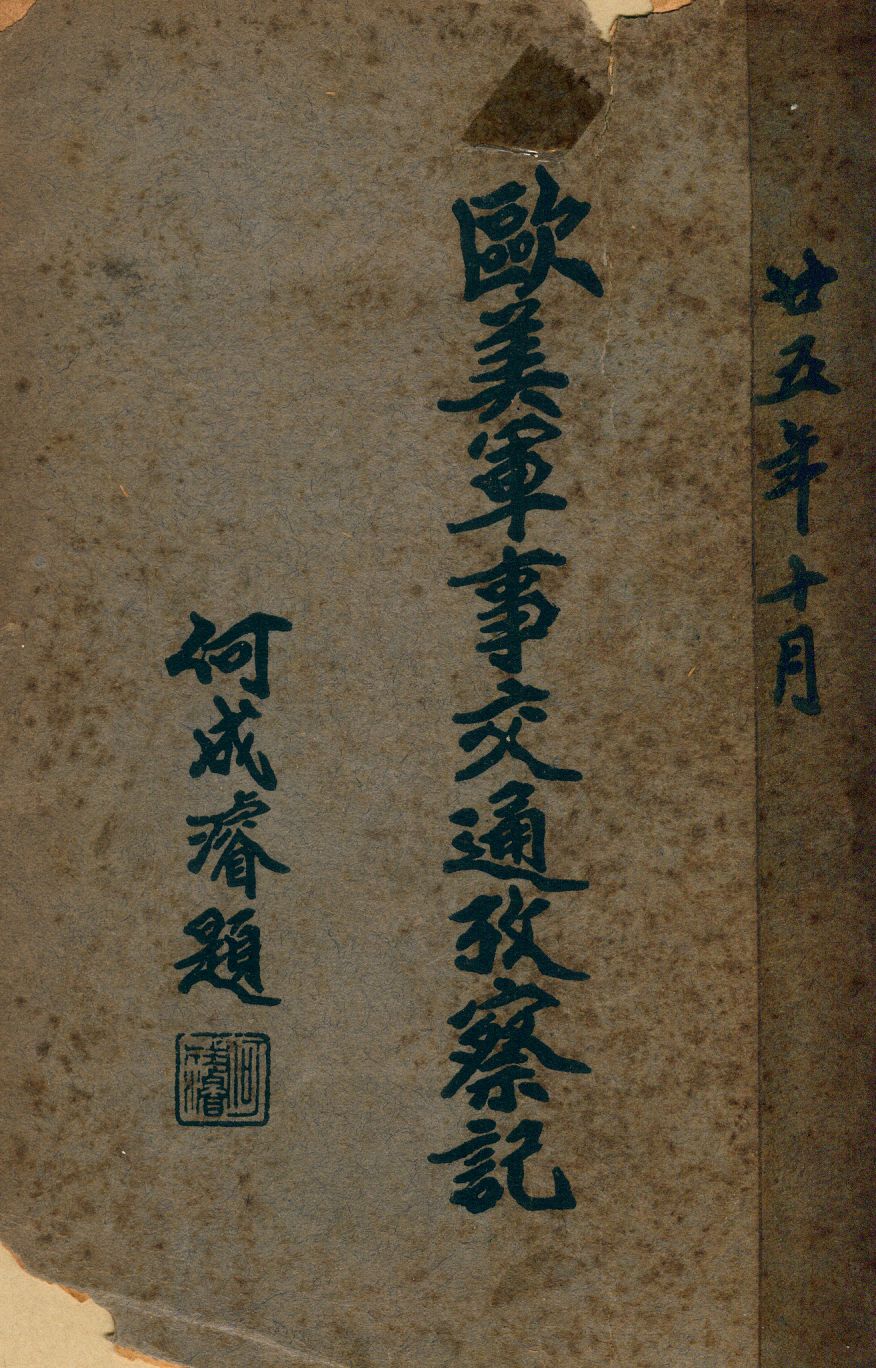 廿五年十月
歐美軍事交通攷察記
何成濬題
何成濬